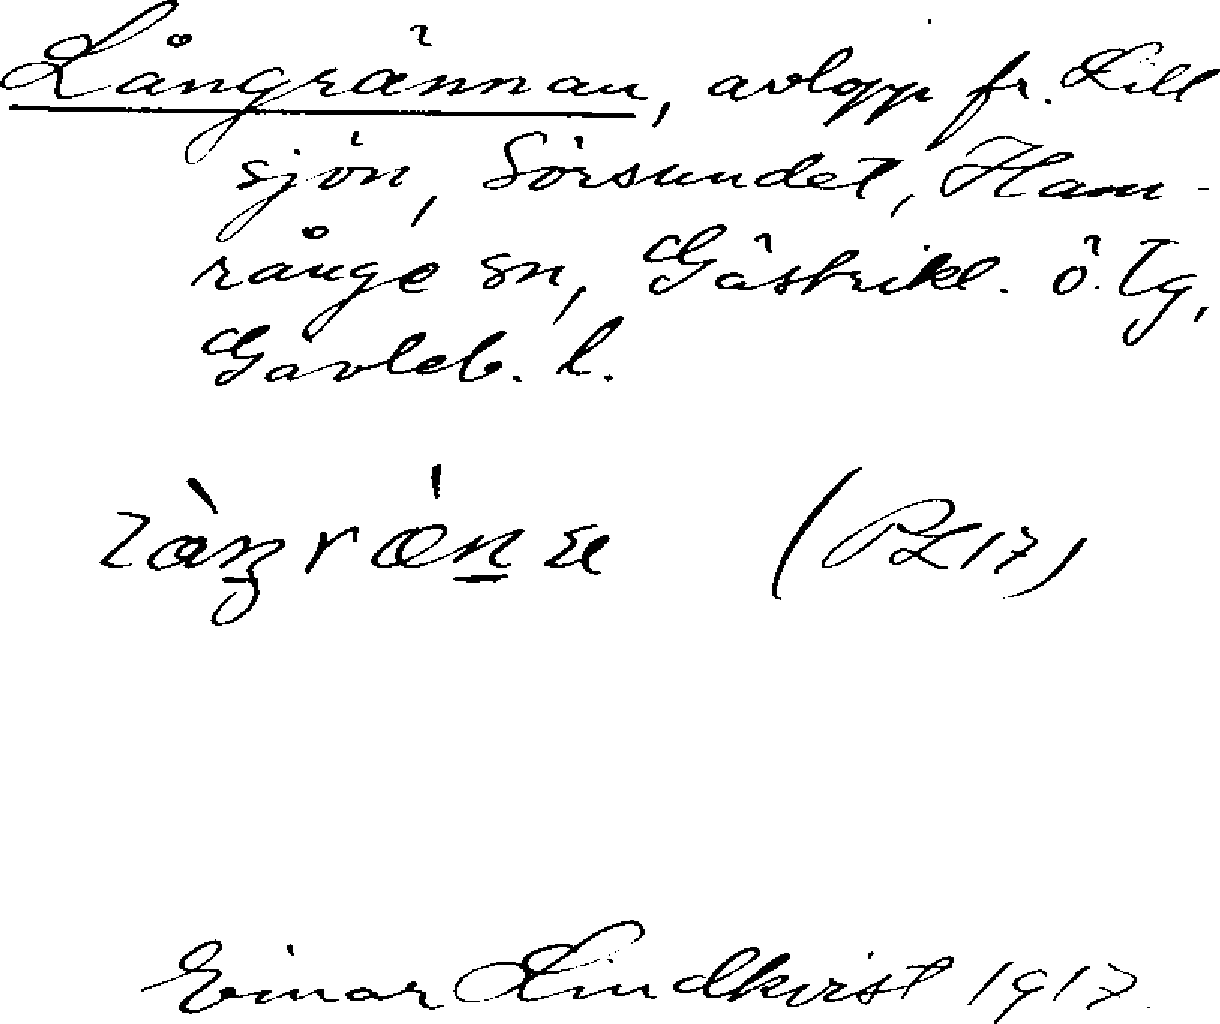 Långrännan, avlopp fr. Lill
sjön, Sörsundet, Ham-
rånge sn, Gästrikl. ö. Tg,
Gävleb. l.
(PL 17)
Einar Lindkvist 1917